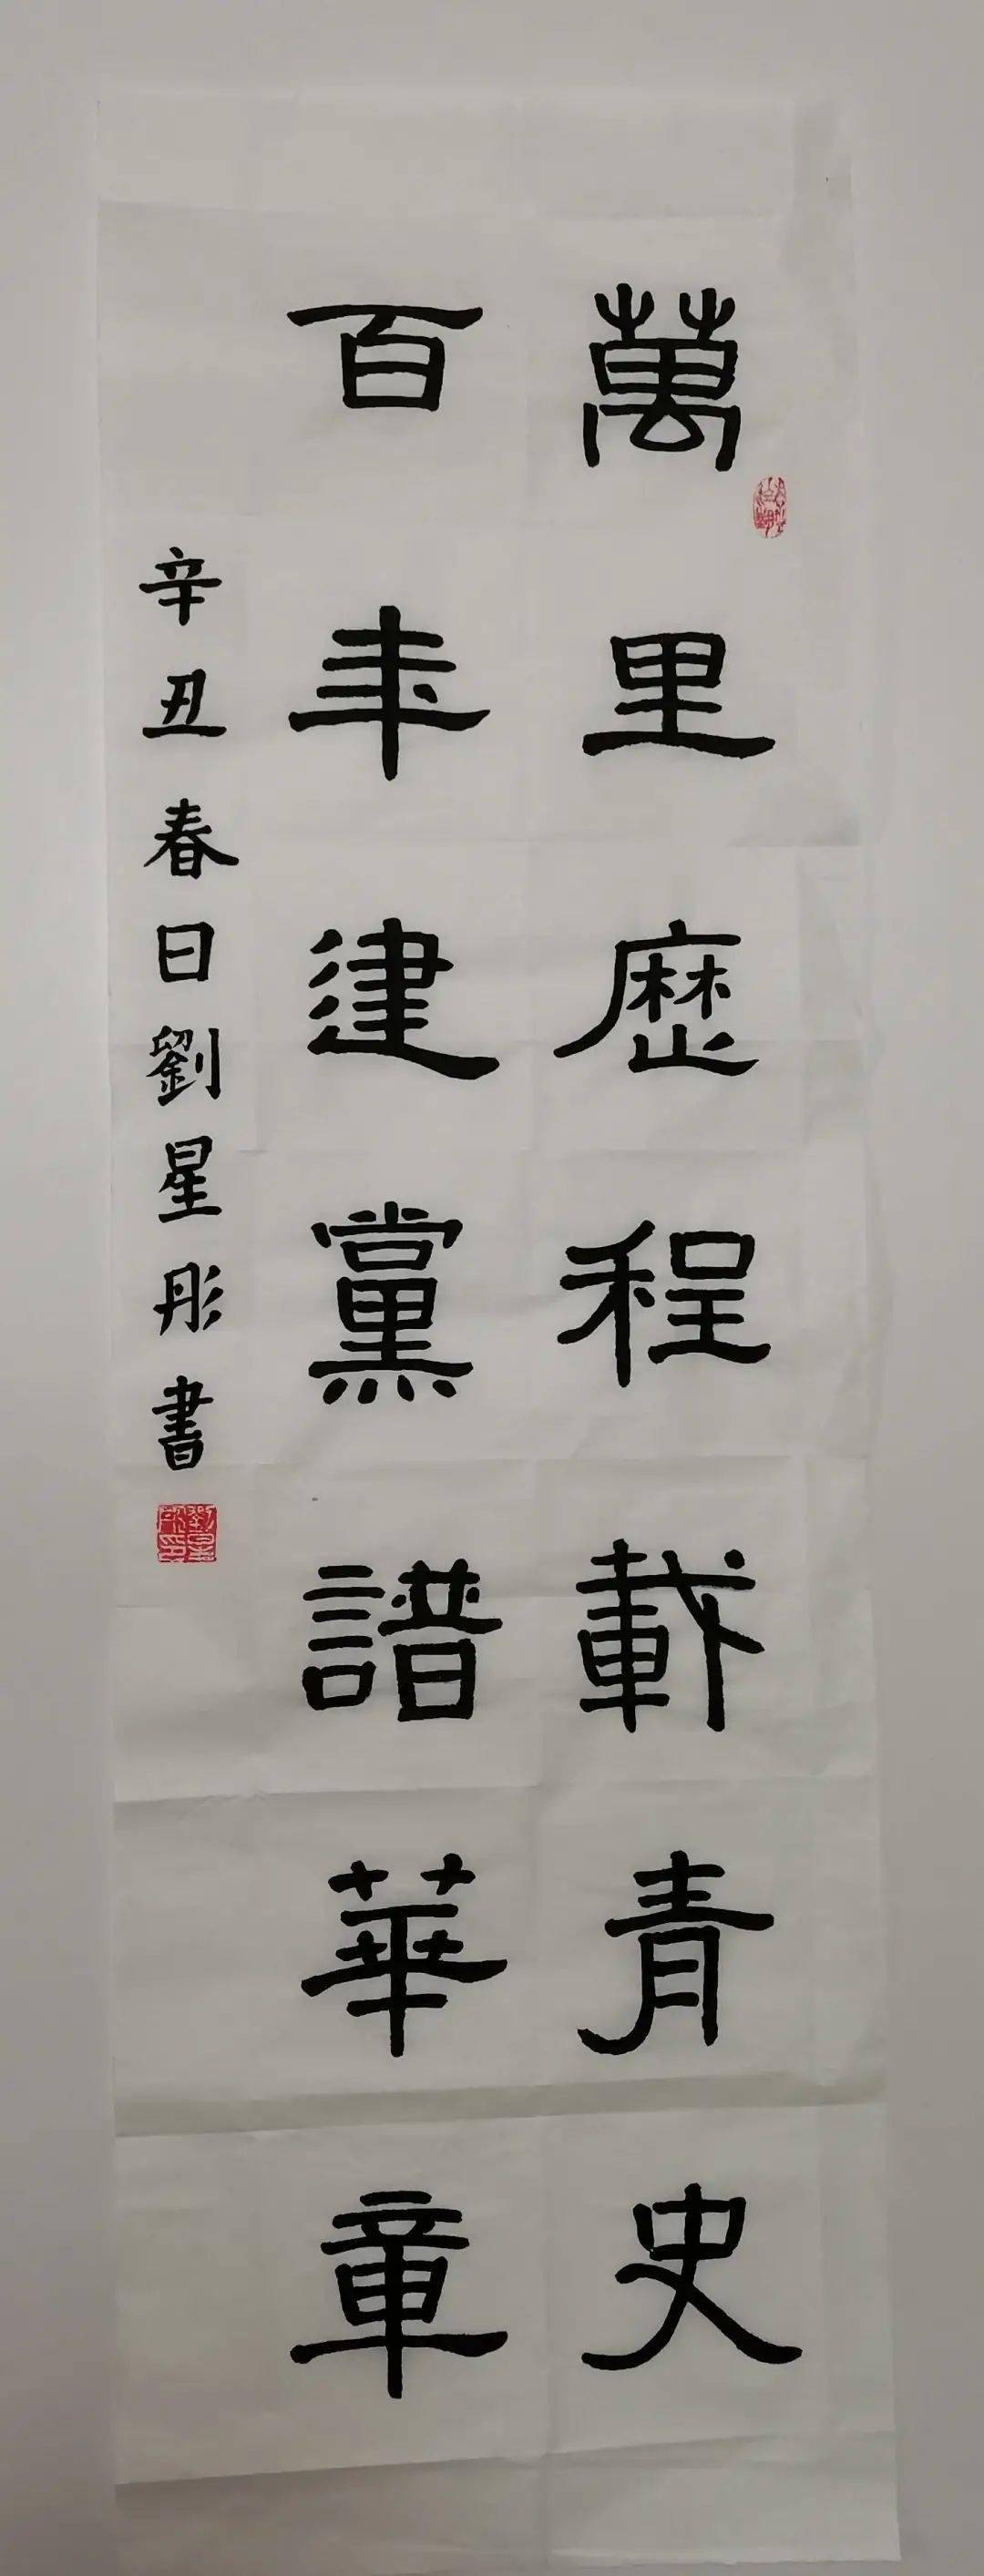 萬里歷程載青史
百年建黨譜華章
辛丑春日劉星彤書